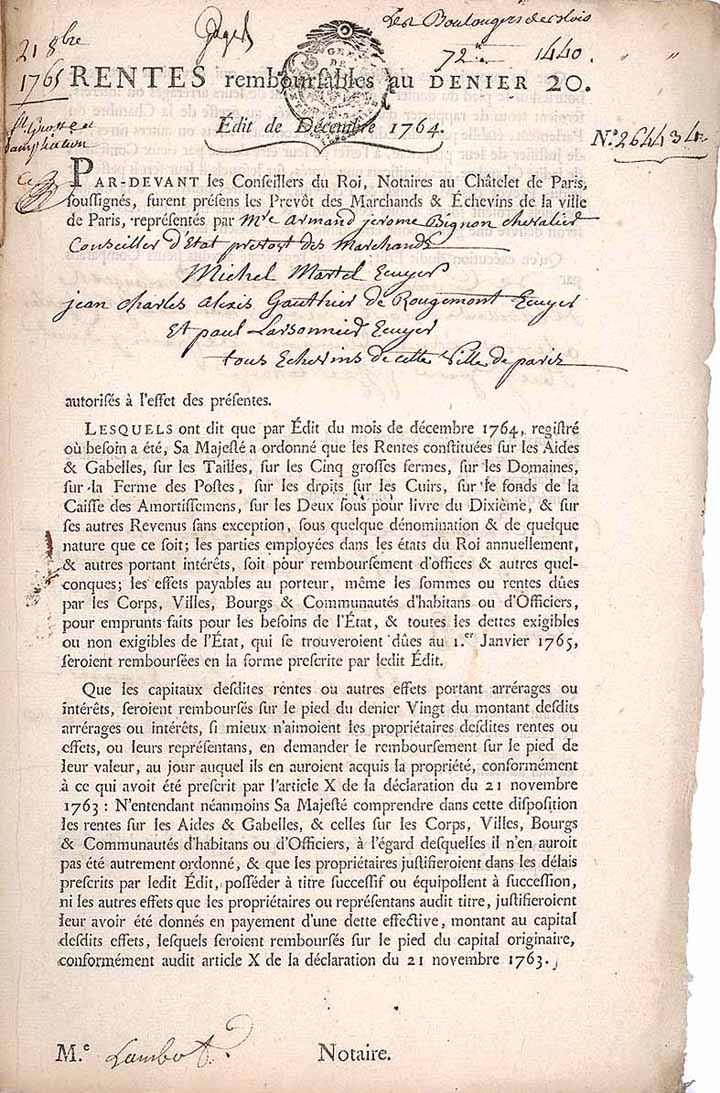 Les Boulangers de blois
21 8bre
1765
72 1440
GEN
DE
RENTES remboursables au DENIER 20.
Édit de Décembre 1764.
N.º 26443
PAR-DEVANT les Conseillers du Roi, Notaires au Châtelet de Paris,
soussignés, furent présens les Prevôt des Marchands & Échevins de la ville
de Paris, représentés par Mre armand jerome Bignon chevalier
Conseiller d'Etat prevost des Marchands
Michel Martel Ecuyer
jean charles alexis Gauthier de Rougemont Ecuyer
Et paul Larsonnier Ecuyer
tous Echevins de cette Ville de paris
autorisés à l'effet des présentes.
LESQUELS ont dit que par Édit du mois de décembre 1764, registré
où besoin a été, Sa Majesté a ordonné que les Rentes constituées sur les Aides
& Gabelles, sur les Tailles, sur les Cinq grosses fermes, sur les Domaines,
sur la Ferme des Postes, sur les droits sur les Cuirs, sur le fonds de la
Caisse des Amortissemens, sur les Deux sous pour livre du Dixième, & sur
ses autres Revenus sans exception, sous quelque dénomination & de quelque
nature que ce soit; les parties employées dans les états du Roi annuellement,
& autres portant intérêts, soit pour remboursement d'offices & autres quel-
conques; les effets payables au porteur, même les sommes ou rentes dûes
par les Corps, Villes, Bourgs & Communautés d'habitans ou d'Officiers,
pour emprunts faits pour les besoins de l'État, & toutes les dettes exigibles
ou non exigibles de l'État, qui se trouveroient dûes au 1.er Janvier 1765,
seroient remboursées en la forme prescrite par ledit Édit.
Que les capitaux desdites rentes ou autres effets portant arrérages ou
intérêts, seroient remboursés sur le pied du denier Vingt du montant desdits
arrérages ou intérêts, si mieux n'aimoient les propriétaires desdites rentes ou
effets, ou leurs représentans, en demander le remboursement sur le pied de
leur valeur, au jour auquel ils en auroient acquis la propriété, conformément
à ce qui avoit été prescrit par l'article X de la déclaration du 21 novembre
1763 : N'entendant néanmoins Sa Majesté comprendre dans cette disposition
les rentes sur les Aides & Gabelles, & celles sur les Corps, Villes, Bourgs
& Communautés d'habitans ou d'Officiers, à l'égard desquelles il n'en auroit
pas été autrement ordonné, & que les propriétaires justifieroient dans les délais
prescrits par ledit Édit, posséder à titre successif ou équipollent à succession,
ni les autres effets que les propriétaires ou représentans audit titre, justifieroient
leur avoir été donnés en payement d'une dette effective, montant au capital
desdits effets, lesquels seroient remboursés sur le pied du capital originaire,
conformément audit article X de la déclaration du 21 novembre 1763.
M.e Lambot Notaire.